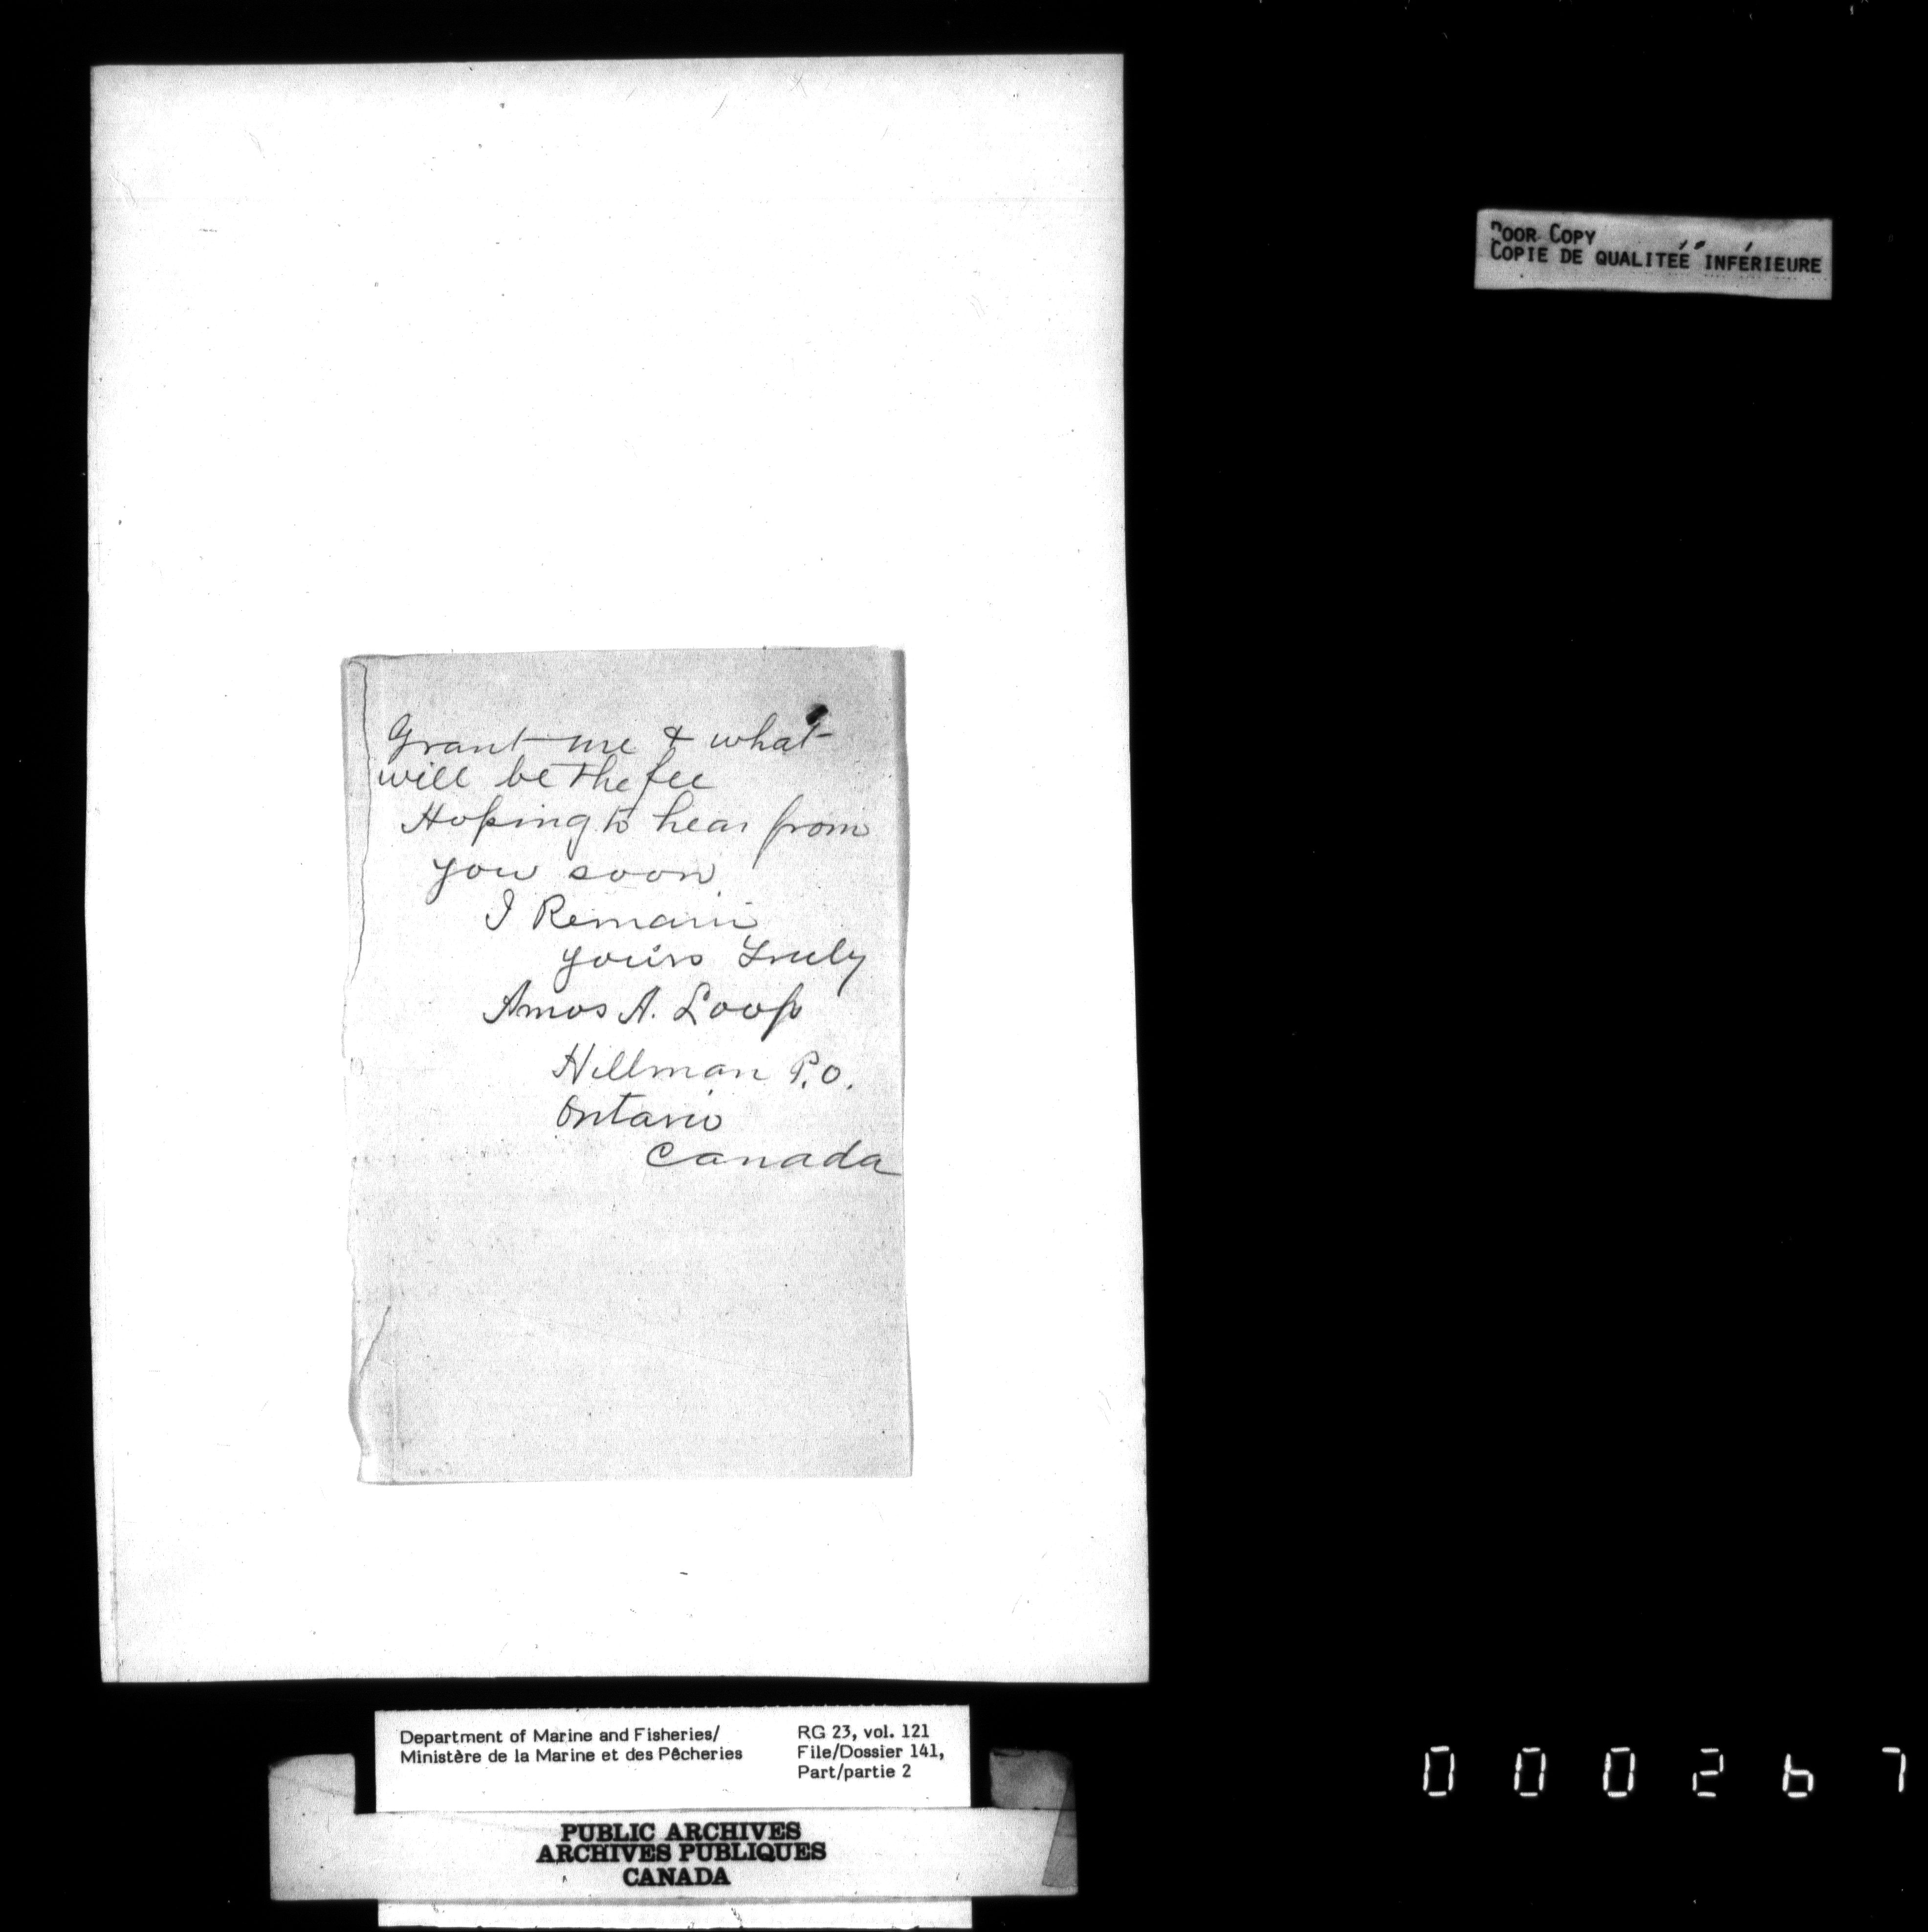 Poor Copy
Copie de qualitéé inférieure
Grant me & what
will be the fee
Hoping to hear from
you soon
I Remain
yours Truly
Amos A. Loop
Hillman P.O.
Ontario
Canada
Department of Marine and Fisheries/
Ministère de la Marine et des Pêcheries
RG 23, vol. 121
File/Dossier 141,
Part/partie 2
PUBLIC ARCHIVES
ARCHIVES PUBLIQUES
CANADA
000267